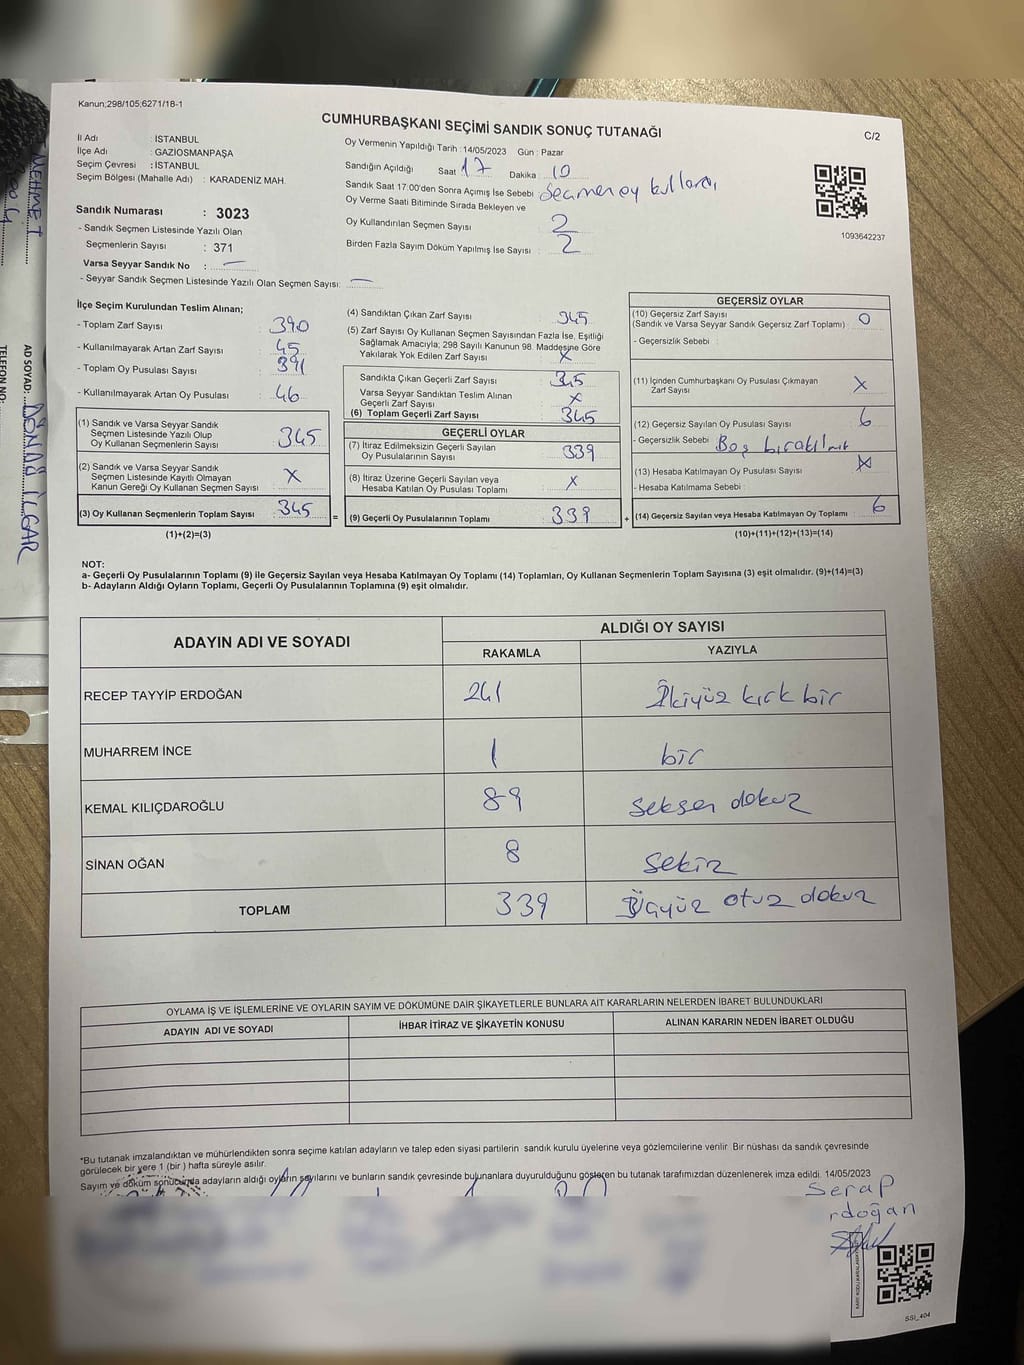 Kanun;298/105;6271/18-1
CUMHURBAŞKANI SEÇİMİ SANDIK SONUÇ TUTANAĞI
C/2
İl Adı : İSTANBUL
İlçe Adı : GAZİOSMANPAŞA
Seçim Çevresi : İSTANBUL
Seçim Bölgesi (Mahalle Adı) : KARADENİZ MAH.
Sandık Numarası : 3023
- Sandık Seçmen Listesinde Yazılı Olan
Seçmenlerin Sayısı : 371
Varsa Seyyar Sandık No : —
- Seyyar Sandık Seçmen Listesinde Yazılı Olan Seçmen Sayısı: —
Oy Vermenin Yapıldığı Tarih :14/05/2023 Gün : Pazar
Sandığın Açıldığı Saat 17 Dakika 10
Sandık Saat 17:00'den Sonra Açımış İse Sebebi Seçmen oy kullandı
Oy Verme Saati Bitiminde Sırada Bekleyen ve
Oy Kullandırılan Seçmen Sayısı 2
Birden Fazla Sayım Döküm Yapılmış İse Sayısı : 2
1093642237
İlçe Seçim Kurulundan Teslim Alınan;
- Toplam Zarf Sayısı : 390
- Kullanılmayarak Artan Zarf Sayısı : 45
- Toplam Oy Pusulası Sayısı : 391
- Kullanılmayarak Artan Oy Pusulası : 46
(1) Sandık ve Varsa Seyyar Sandık
Seçmen Listesinde Yazılı Olup
Oy Kullanan Seçmenlerin Sayısı : 345
(2) Sandık ve Varsa Seyyar Sandık
Seçmen Listesinde Kayıtlı Olmayan
Kanun Gereği Oy Kullanan Seçmen Sayısı : X
(3) Oy Kullanan Seçmenlerin Toplam Sayısı : 345
(1)+(2)=(3)
=
(4) Sandıktan Çıkan Zarf Sayısı : 345
(5) Zarf Sayısı Oy Kullanan Seçmen Sayısından Fazla İse, Eşitliği
Sağlamak Amacıyla; 298 Sayılı Kanunun 98. Maddesine Göre
Yakılarak Yok Edilen Zarf Sayısı : X
Sandıkta Çıkan Geçerli Zarf Sayısı : 345
Varsa Seyyar Sandıktan Teslim Alınan
Geçerli Zarf Sayısı : X
(6) Toplam Geçerli Zarf Sayısı : 345
GEÇERLİ OYLAR
(7) İtiraz Edilmeksizin Geçerli Sayılan
Oy Pusulalarının Sayısı : 339
(8) İtiraz Üzerine Geçerli Sayılan veya
Hesaba Katılan Oy Pusulası Toplamı : X
(9) Geçerli Oy Pusulalarının Toplamı : 339
+
GEÇERSİZ OYLAR
(10) Geçersiz Zarf Sayısı : 0
(Sandık ve Varsa Seyyar Sandık Geçersiz Zarf Toplamı)
- Geçersizlik Sebebi :
(11) İçinden Cumhurbaşkanı Oy Pusulası Çıkmayan
Zarf Sayısı : X
(12) Geçersiz Sayılan Oy Pusulası Sayısı : 6
- Geçersizlik Sebebi : Boş bırakılmış
(13) Hesaba Katılmayan Oy Pusulası Sayısı : X
- Hesaba Katılmama Sebebi :
(14) Geçersiz Sayılan veya Hesaba Katılmayan Oy Toplamı : 6
(10)+(11)+(12)+(13)=(14)
NOT:
a- Geçerli Oy Pusulalarının Toplamı (9) ile Geçersiz Sayılan veya Hesaba Katılmayan Oy Toplamı (14) Toplamları, Oy Kullanan Seçmenlerin Toplam Sayısına (3) eşit olmalıdır. (9)+(14)=(3)
b- Adayların Aldığı Oyların Toplamı, Geçerli Oy Pusulalarının Toplamına (9) eşit olmalıdır.
ADAYIN ADI VE SOYADI
ALDIĞI OY SAYISI
RAKAMLA YAZIYLA
RECEP TAYYİP ERDOĞAN 241 İkiyüz kırk bir
MUHARREM İNCE 1 bir
KEMAL KILIÇDAROĞLU 89 seksen dokuz
SİNAN OĞAN 8 sekiz
TOPLAM 339 Üçyüz otuz dokuz
OYLAMA İŞ VE İŞLEMLERİNE VE OYLARIN SAYIM VE DÖKÜMÜNE DAİR ŞİKAYETLERLE BUNLARA AİT KARARLARIN NELERDEN İBARET BULUNDUKLARI
ADAYIN ADI VE SOYADI İHBAR İTİRAZ VE ŞİKAYETİN KONUSU ALINAN KARARIN NEDEN İBARET OLDUĞU
*Bu tutanak imzalandıktan ve mühürlendikten sonra seçime katılan adayların ve talep eden siyasi partilerin sandık kurulu üyelerine veya gözlemcilerine verilir. Bir nüshası da sandık çevresinde
görülecek bir yere 1 (bir) hafta süreyle asılır.
Sayım ve döküm sonucunda adayların aldığı oyların sayılarını ve bunların sandık çevresinde bulunanlara duyurulduğunu gösteren bu tutanak tarafımızdan düzenlenerek imza edildi. 14/05/2023
Serap
rdoğan
SSI_404
MEHMET
AD SOYAD:
İLGAR
TELEFON NO: